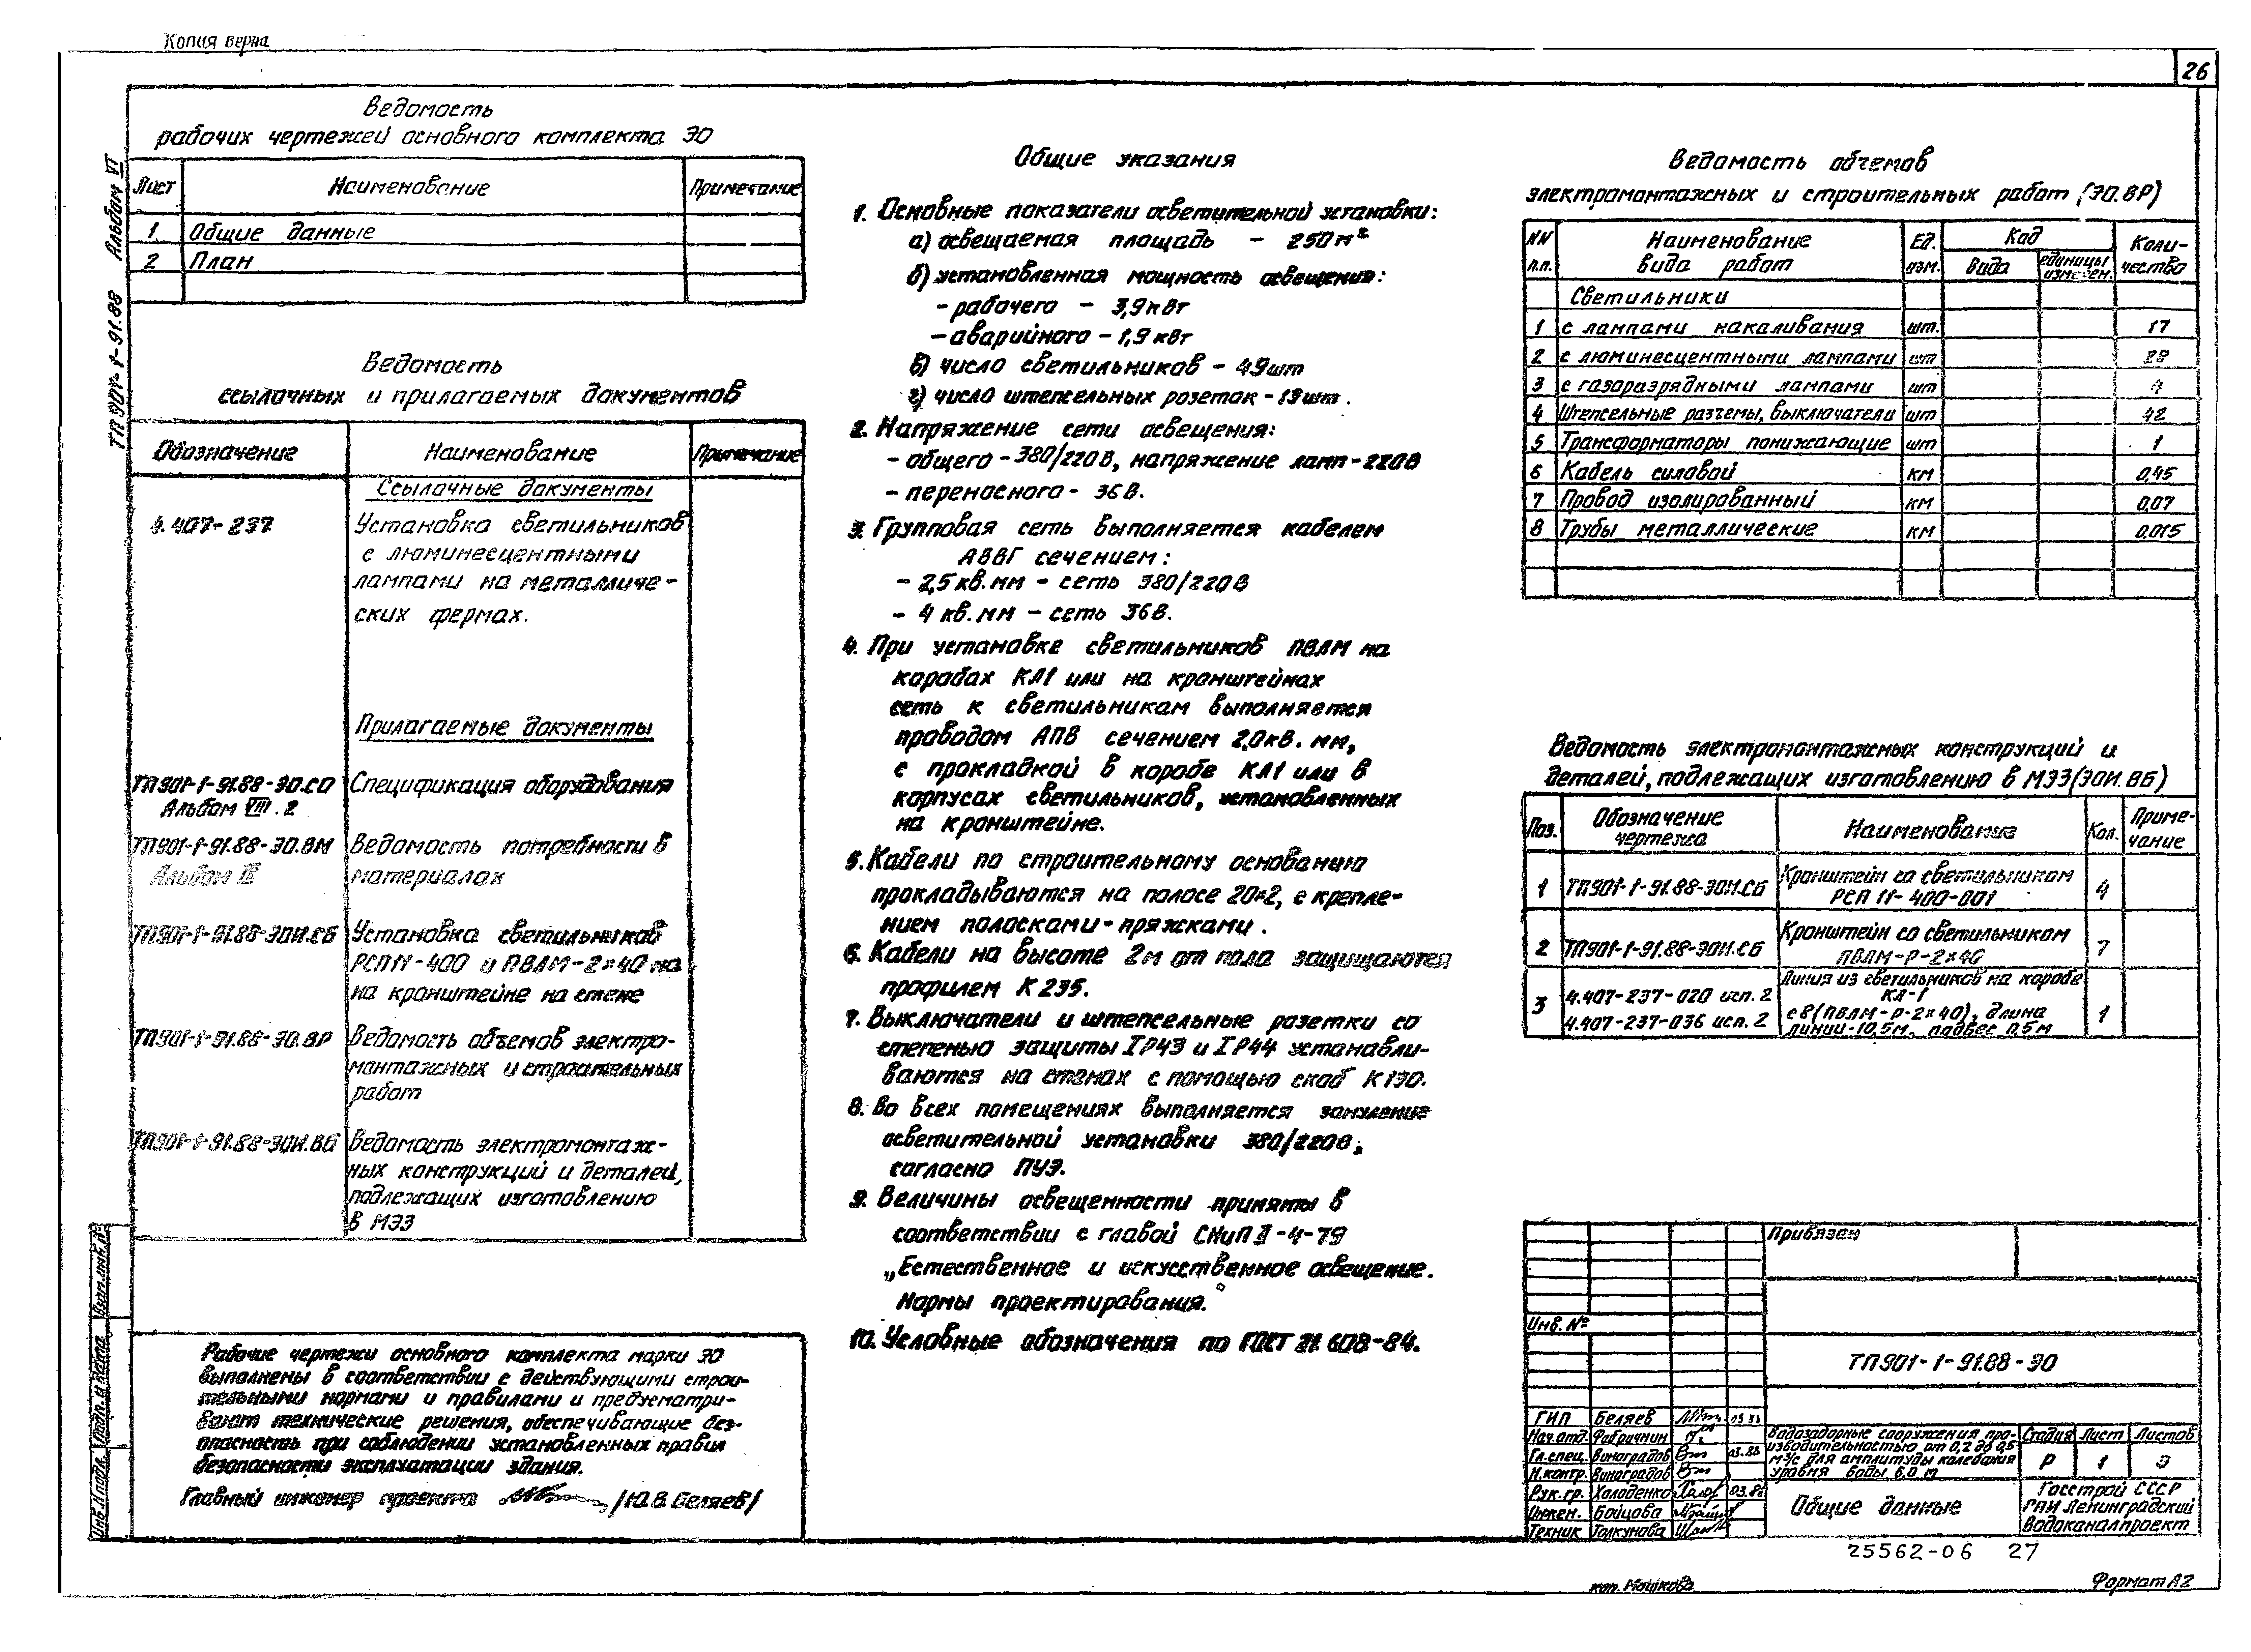 Копия верна
26
Альбом VI
ТП 901-1-91.88
Ведомость
рабочих чертежей основного комплекта ЭО
Лист Наименование Примечание
1 Общие данные
2 План
Ведомость
ссылочных и прилагаемых документов
Обозначение Наименование Примечание
Ссылочные документы
4.407-237 Установка светильников
с люминесцентными
лампами на металличе-
ских фермах.
Прилагаемые документы
ТП901-1-91.88-ЭО.СО Спецификация оборудования
Альбом VIII.2
ТП901-1-91.88-ЭО.ВМ Ведомость потребности в
Альбом материалах
ТП901-1-91.88-ЭОИ.СБ Установка светильников
РСП11-400 и ПВЛМ-2×40 на
на кронштейне на стене
ТП901-1-91.88-ЭО.ВР Ведомость объемов электро-
монтажных и строительных
работ
ТП901-1-91.88-ЭОИ.ВБ Ведомость электромонтаж-
ных конструкций и деталей,
подлежащих изготовлению
в МЭЗ
Рабочие чертежи основного комплекта марки ЭО
выполнены в соответствии с действующими строи-
тельными нормами и правилами и предусматри-
вают технические решения, обеспечивающие без-
опасность при соблюдении установленных правил
безопасности эксплуатации здания.
Главный инженер проекта /Ю.В. Беляев/
Взам.инв.№
Подп. и дата
Инв.N подл.
Общие указания
1. Основные показатели осветительной установки:
а) освещаемая площадь - 250 м²
б) установленная мощность освещения:
- рабочего - 3,9 кВт
- аварийного - 1,9 кВт
в) число светильников - 49 шт
г) число штепсельных розеток - 19 шт.
2. Напряжение сети освещения:
- общего - 380/220 В, напряжение ламп - 220 В
- переносного - 36 В.
3. Групповая сеть выполняется кабелем
АВВГ сечением:
- 2,5 кв. мм - сеть 380/220 В
- 4 кв. мм - сеть 36 В.
4. При установке светильников ПВЛМ на
коробах КЛ1 или на кронштейнах
сеть к светильникам выполняется
проводом АПВ сечением 2,0 кв. мм,
с прокладкой в коробе КЛ1 или в
корпусах светильников, установленных
на кронштейне.
5. Кабели по строительному основанию
прокладываются на полосе 20×2, с крепле-
нием полосками-пряжками.
6. Кабели на высоте 2м от пола защищаются
профилем К 235.
7. Выключатели и штепсельные розетки со
степенью защиты IP43 и IP44 устанавли-
ваются на стенах с помощью скоб К130.
8. Во всех помещениях выполняется зануление
осветительной установки 380/220В,
согласно ПУЭ.
9. Величины освещенности приняты в
соответствии с главой СНиП II-4-79
„Естественное и искусственное освещение.
Нормы проектирования."
10. Условные обозначения по ГОСТ 21 608-84.
Ведомость объемов
электромонтажных и строительных работ (ЭО.ВР)
NN Наименование Ед. Код Коли-
п.п. вида работ изм. Вида единицы измерен. чество
Светильники
1 с лампами накаливания шт. 17
2 с люминесцентными лампами шт 28
3 с газоразрядными лампами шт 4
4 Штепсельные разъемы, выключатели шт 42
5 Трансформаторы понижающие шт 1
6 Кабель силовой км 0,45
7 Провод изолированный км 0,07
8 Трубы металлические км 0,015
Ведомость электромонтажных конструкций и
деталей, подлежащих изготовлению в МЭЗ (ЭОИ.ВБ)
Поз. Обозначение чертежа Наименование Кол. Приме-
чание
1 ТП901-1-91.88-ЭОИ.СБ Кронштейн со светильником
РСП 11-400-001 4
2 ТП901-1-91.88-ЭОИ.СБ Кронштейн со светильником
ПВЛМ-Р-2×40 7
3 4.407-237-020 исп. 2 Линия из светильников на коробе
КЛ-1
4.407-237-036 исп. 2 с 8(ПВЛМ-Р-2×40), длина
линии-10,5м, подвес 0,5м 1
Привязан
Инв. №
ТП901-1-91.88-ЭО
ГИП Беляев
Нач.отд. Фабричнин
Гл.спец. Виноградов 03.88
Н.контр. Виноградов
Рук.гр. Холоденко 03.88
Инжен. Бойцова
Техник Толкунова
Водозаборные сооружения про-
изводительностью от 0,2 до 0,5
м³/с для амплитуды колебания
уровня воды 6,0 м
Стадия Лист Листов
Р 1 3
Общие данные
Госстрой СССР
ГПИ Ленинградский
Водоканалпроект
25562-06 27
коп. Мошкова
Формат А2